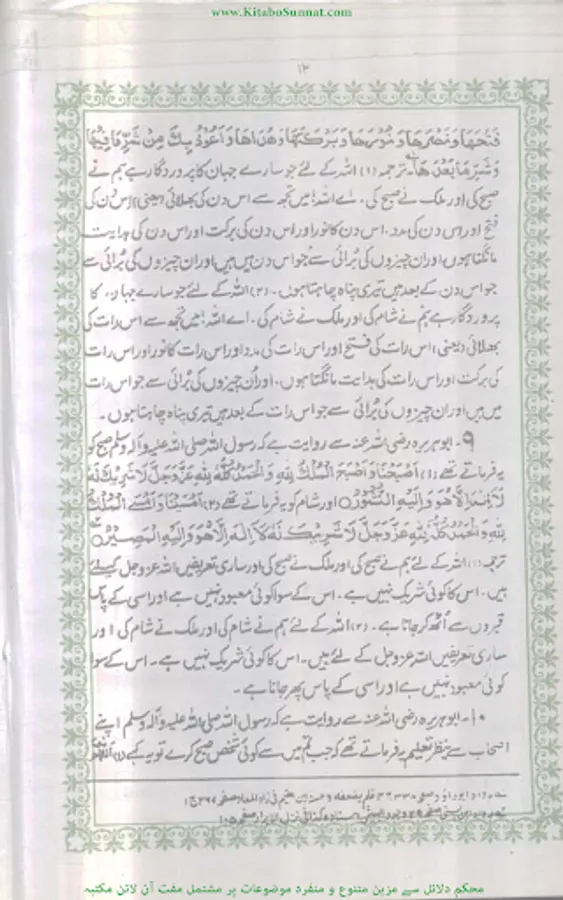 www.KitaboSunnat.com
۱۲
فَتْحَهَا وَنَصْرَهَا وَنُوْرَهَا وَبَرَكَتَهَا وَهُدَاهَا وَاَعُوْذُ بِكَ مِنْ شَرِّ مَا فِيْهَا
وَشَرِّ مَا بَعْدَهَا ترجمہ (۱) اللہ کے لئے جو سارے جہان کا پروردگار ہے ہم نے
صبح کی اور ملک نے صبح کی۔ اے اللہ! میں تجھ سے اس دن کی بھلائی (یعنی) اس دن کی
فتح اور اس دن کی مدد، اس دن کا نور اور اس دن کی برکت اور اس دن کی ہدایت
مانگتا ہوں اور ان چیزوں کی بُرائی سے جو اس دن میں ہیں اور ان چیزوں کی بُرائی سے
جو اس دن کے بعد ہیں تیری پناہ چاہتا ہوں۔ (۲) اللہ کے لئے جو سارے جہان کا
پروردگار ہے ہم نے شام کی اور ملک نے شام کی۔ اے اللہ! میں تجھ سے اس رات کی
بھلائی (یعنی) اس رات کی فتح اور اس رات کی مدد اور اس رات کا نور اور اس رات
کی برکت اور اس رات کی ہدایت مانگتا ہوں۔ اور اُن چیزوں کی بُرائی سے جو اس رات
میں ہیں اور ان چیزوں کی بُرائی سے جو اس رات کے بعد ہیں تیری پناہ چاہتا ہوں۔
۹۔ ابو ہریرہ رضی اللہ عنہ سے روایت ہے کہ رسول اللہ صلی اللہ علیہ وآلہ وسلم صبح کو
یہ فرماتے تھے (۱) اَصْبَحْنَا وَاَصْبَحَ الْمُلْكُ لِلّٰهِ وَالْحَمْدُ كُلُّهٗ لِلّٰهِ عَزَّ وَجَلَّ لَا شَرِيْكَ لَهٗ
لَا اِلٰهَ اِلَّا هُوَ وَاِلَيْهِ النُّشُوْرُ ○ اور شام کو یہ فرماتے تھے (۲) اَمْسَيْنَا وَاَمْسَى الْمُلْكُ
لِلّٰهِ وَالْحَمْدُ كُلُّهٗ لِلّٰهِ عَزَّ وَجَلَّ لَا شَرِيْكَ لَهٗ لَا اِلٰهَ اِلَّا هُوَ وَاِلَيْهِ الْمَصِيْرُ ○
ترجمہ (۱) اللہ کے لئے ہم نے صبح کی اور ملک نے صبح کی اور ساری تعریفیں اللہ عز وجل کیلئے
ہیں۔ اس کا کوئی شریک نہیں ہے۔ اس کے سوا کوئی معبود نہیں ہے اور اسی کے پاس
قبروں سے اُٹھ کر جانا ہے۔ (۲) اللہ کے لئے ہم نے شام کی اور ملک نے شام کی اور
ساری تعریفیں اللہ عز وجل کے لئے ہیں۔ اس کا کوئی شریک نہیں ہے۔ اس کے سوا
کوئی معبود نہیں ہے اور اسی کے پاس پھر جانا ہے۔
۱۰۔ ابو ہریرہ رضی اللہ عنہ سے روایت ہے کہ رسول اللہ صلی اللہ علیہ وآلہ وسلم اپنے
اصحاب سے بنظر تعلیم یہ فرماتے تھے کہ جب تم میں سے کوئی شخص صبح کرے تو یہ کہے (۱)
ابوداؤد صفحہ
محکم دلائل سے مزین متنوع و منفرد موضوعات پر مشتمل مفت آن لائن مکتبہ